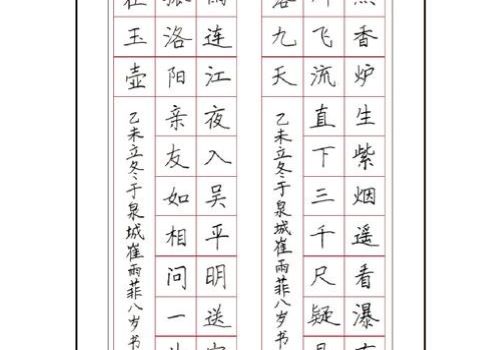 香炉生紫烟遥看瀑
川飞流直下三千尺疑是
九天
乙未立冬于泉城崔雨菲八岁书
雨连江夜入吴平明送
洛阳亲友如相问一
在玉壶
乙未立冬于泉城崔雨菲八岁书